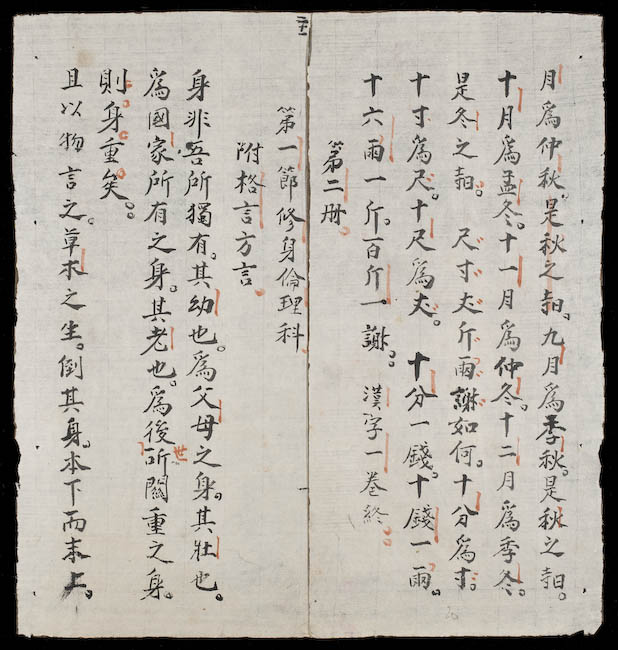 月爲仲秋。是秋之時。九月爲季秋。是秋之時。
十月爲孟冬。十一月爲仲冬。十二月爲季冬。
是冬之時。尺寸丈斤兩謝如何。十分爲寸。
十寸爲尺。十尺爲丈。十分一錢。十錢一兩。
十六兩一斤。百斤一謝。漢字一卷終
第二册
第一節修身倫理科
附格言方言
身非吾所獨有。其幼也。爲父母之身。其壯也。
爲國家所有之身。其老也。爲後世所關重之身。
則身重矣。
且以物言之。草木之生。倒其身。本下而末上。